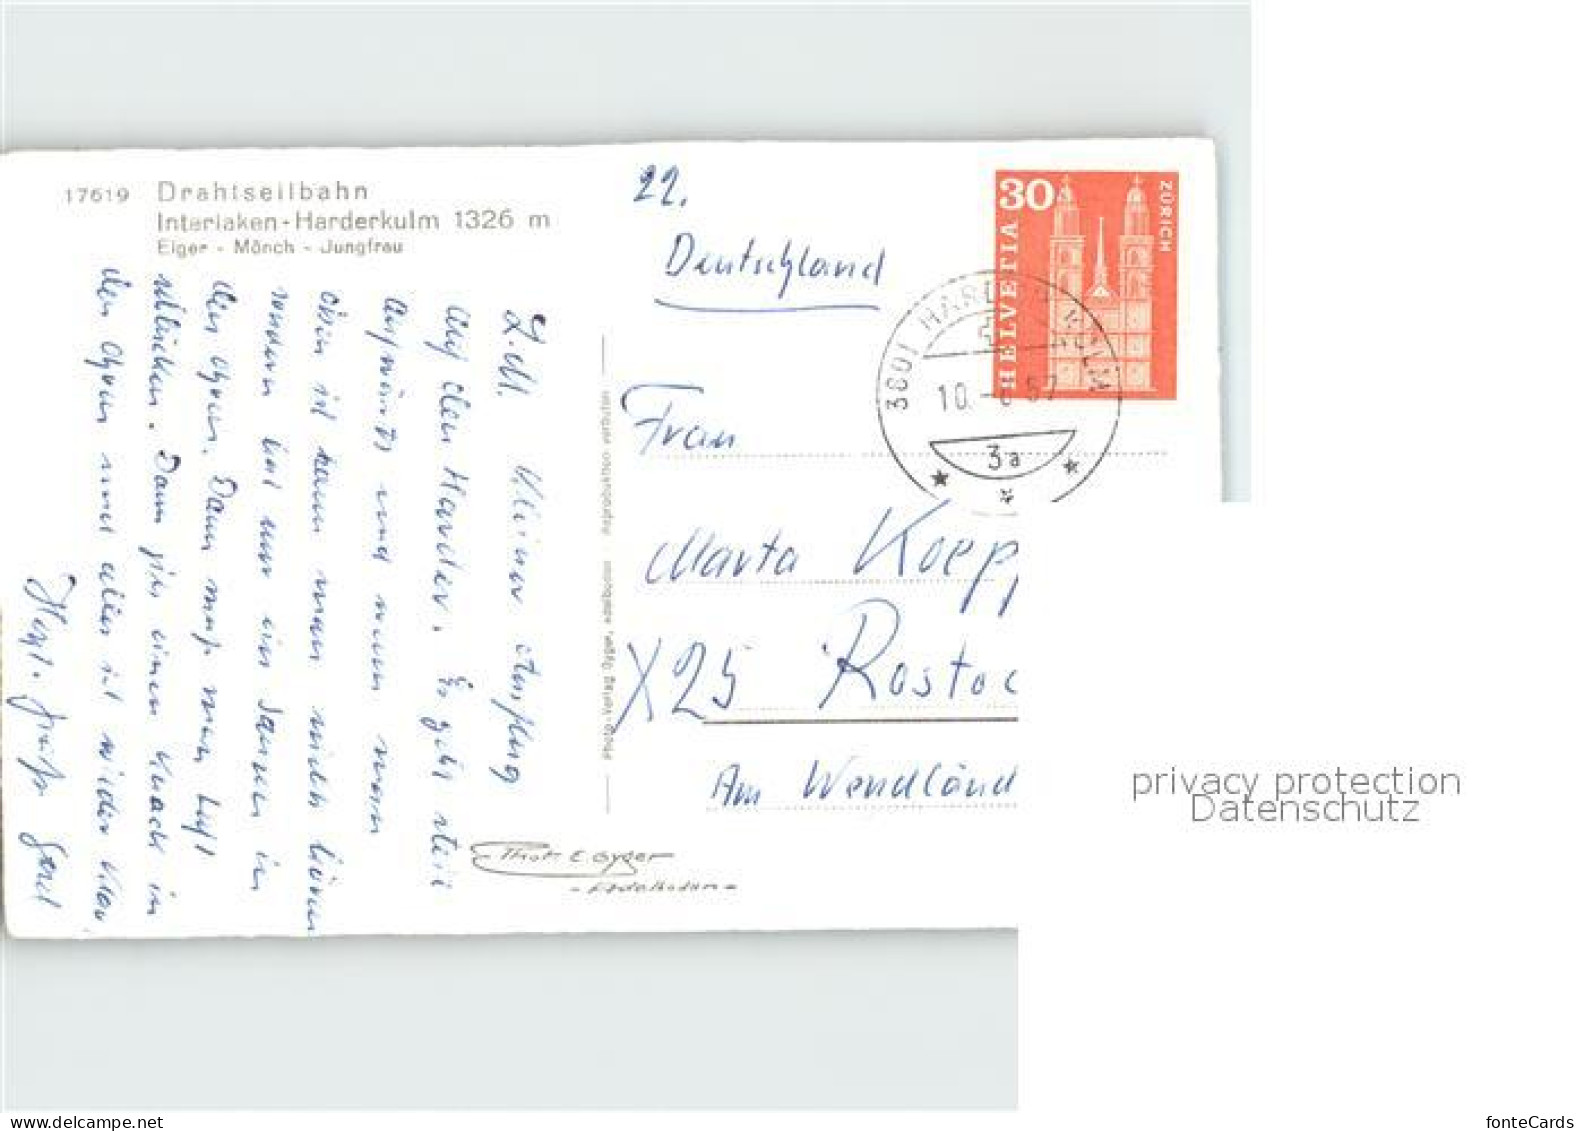 17619 Drahtseilbahn
Interlaken-Harderkulm 1326 m
Eiger - Mönch - Jungfrau
L. M. Kleiner Ausflug
auf den Harder. Es geht steil
aufwärts und wenn man
oben ist kann man nicht
sondern hat nur ein Sausen in
den Ohren. Dann muß man Luft
schlucken. Dann gibts einen Knack in
den Ohren und alles ist wieder klar.
Herzl. Grüße Gerd
Photo-Verlag Gyger, Adelboden Reproduktion verboten
Phot. E. Gyger
- Adelboden -
22.
Deutschland
30
HELVETIA
ZÜRICH
3801 HARDERKULM
10. -8 67
3a
Frau
Marta Koepp
X25 Rostoc
Am Wendländ
privacy protection
Datenschutz
fonteCards